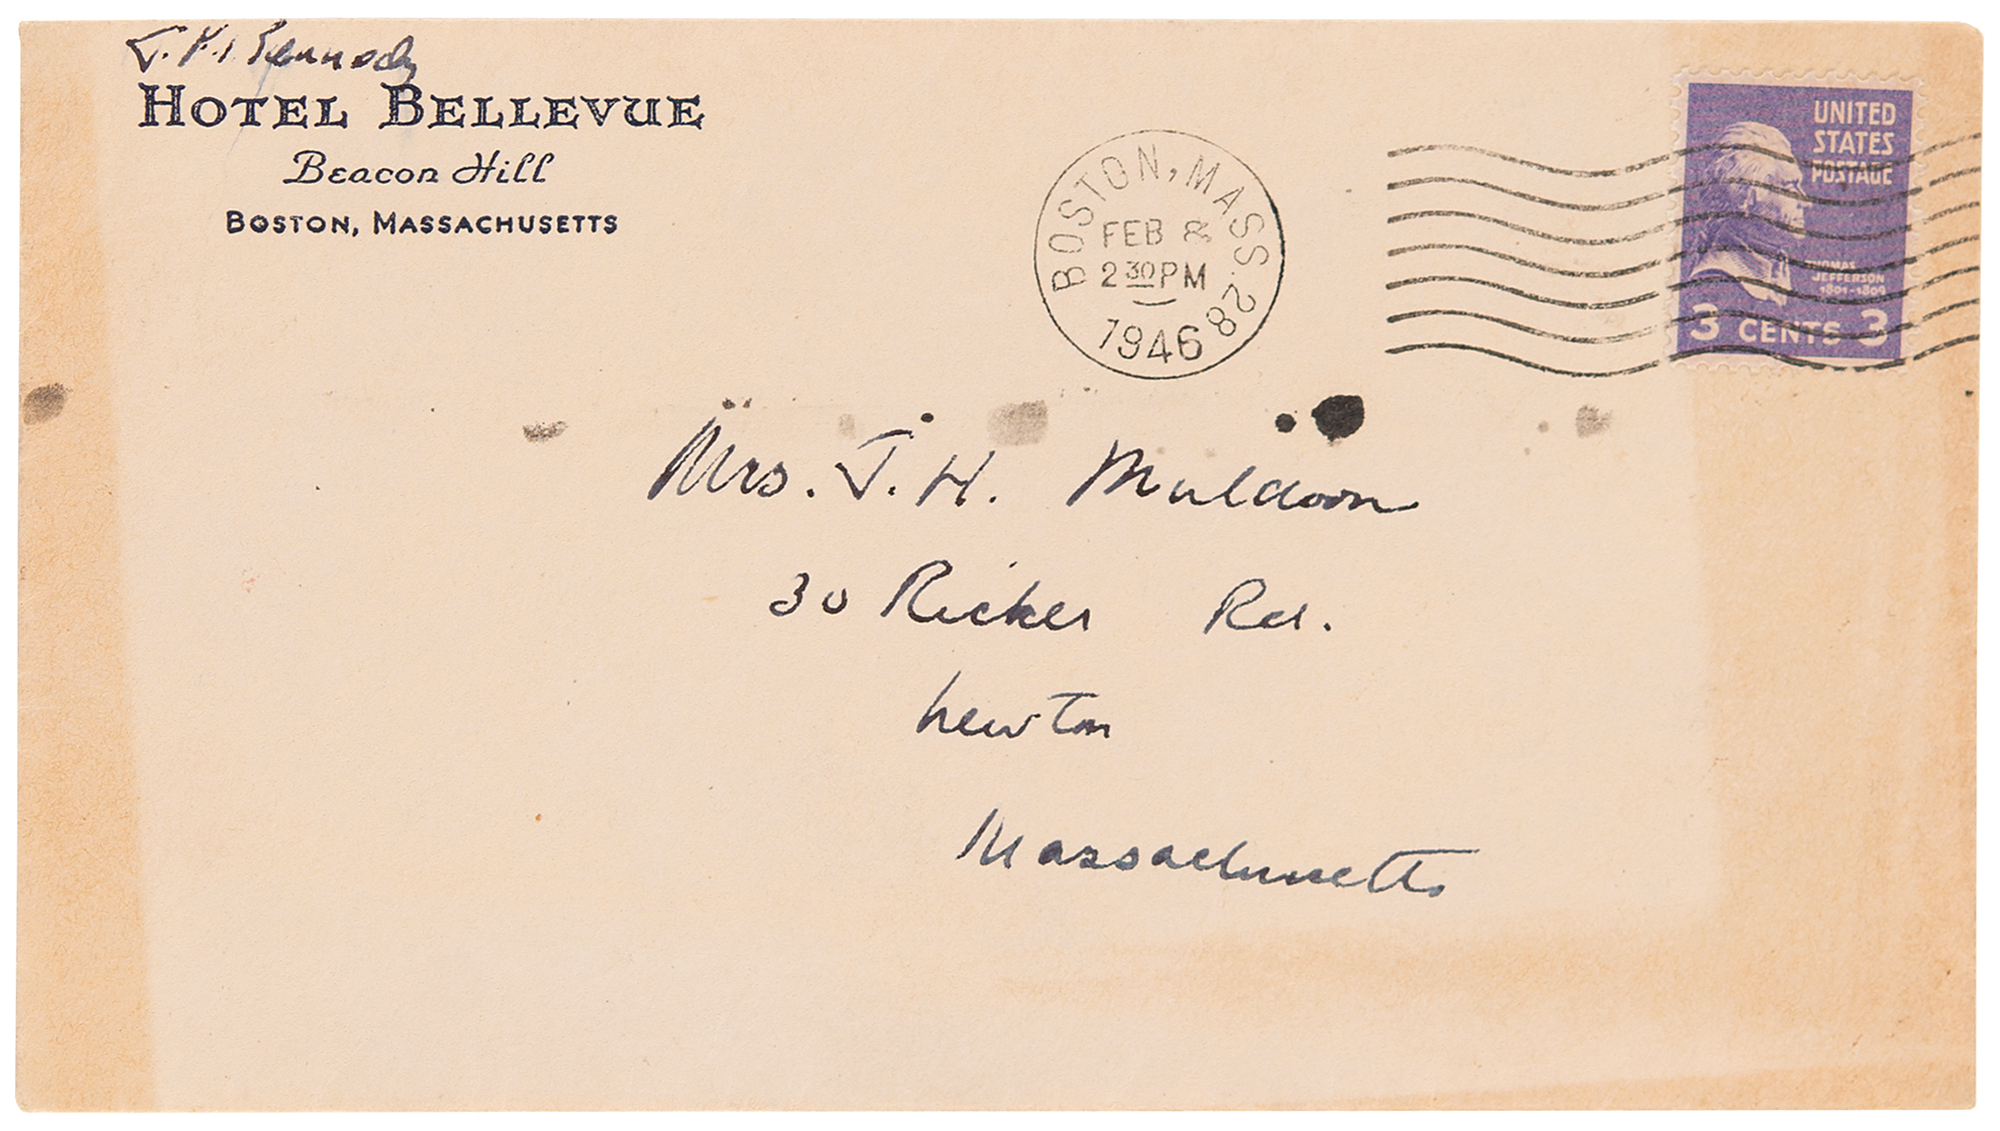 J. F. Kennedy
HOTEL BELLEVUE
Beacon Hill
BOSTON, MASSACHUSETTS
BOSTON, MASS. 28
FEB 8
2 30 PM
1946
UNITED
STATES
POSTAGE
THOMAS
JEFFERSON
1801-1809
3 CENTS 3
Mrs. J. H. Muldoon
30 Ricker Rd.
Newton
Massachusetts